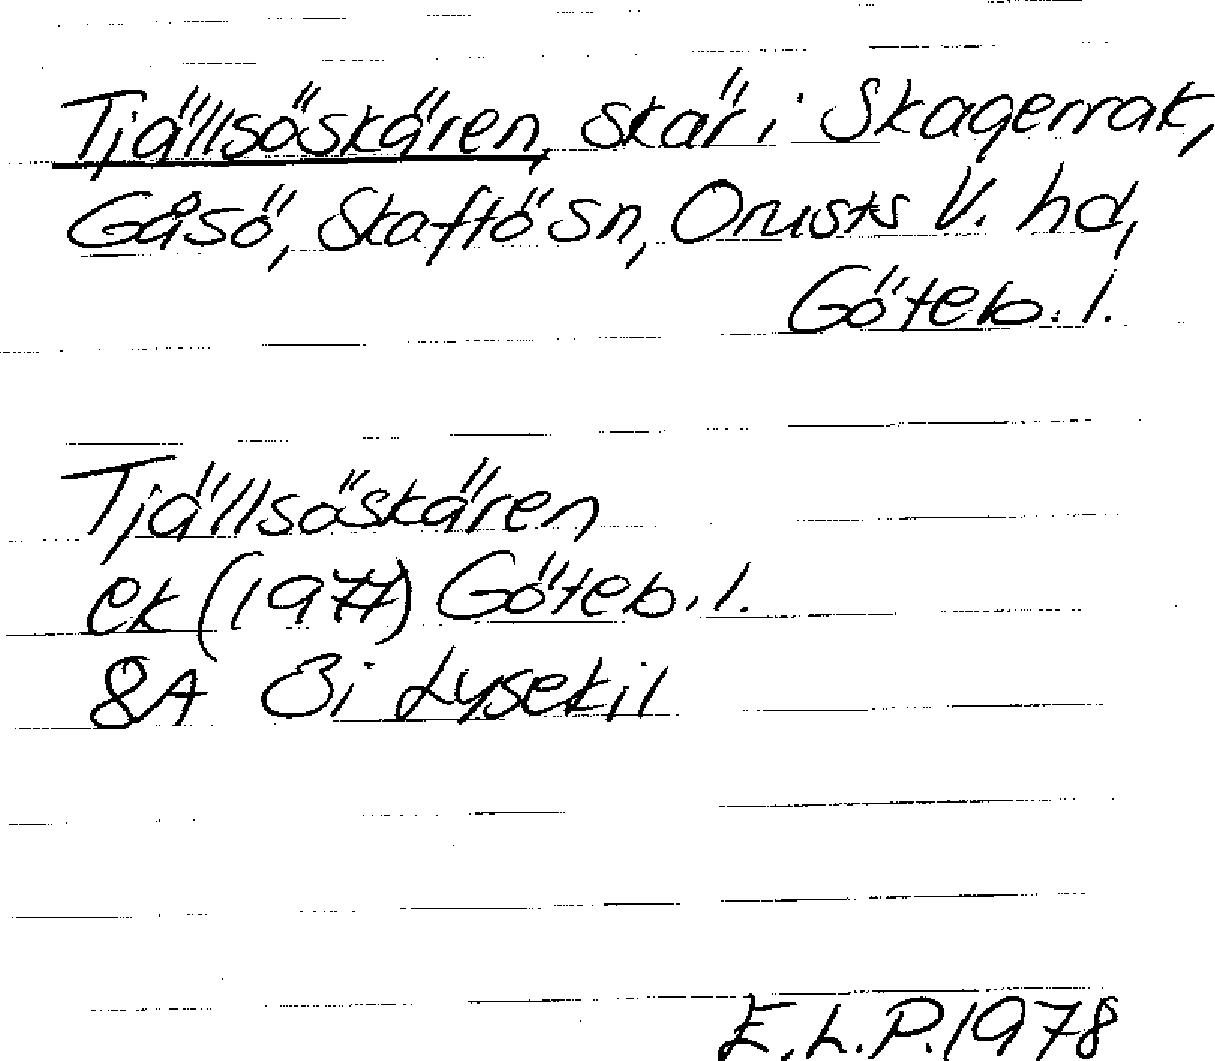 Tjällsöskären, skär i Skagerrak,
Gåsö, Skaftö sn, Orusts V. hd,
Göteb. l.
Tjällsöskären
ek (1977) Göteb. l.
8A 3i Lysekil
E.L.P. 1978